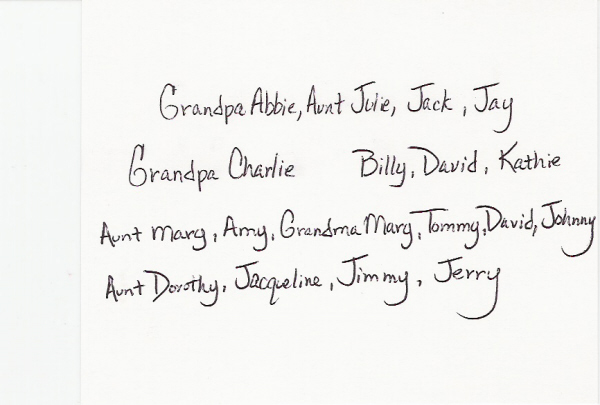 Grandpa Abbie, Aunt Julie, Jack, Jay
Grandpa Charlie Billy, David, Kathie
Aunt Marg, Amy, Grandma Marg, Tommy, David, Johnny
Aunt Dorothy, Jacqueline, Jimmy, Jerry